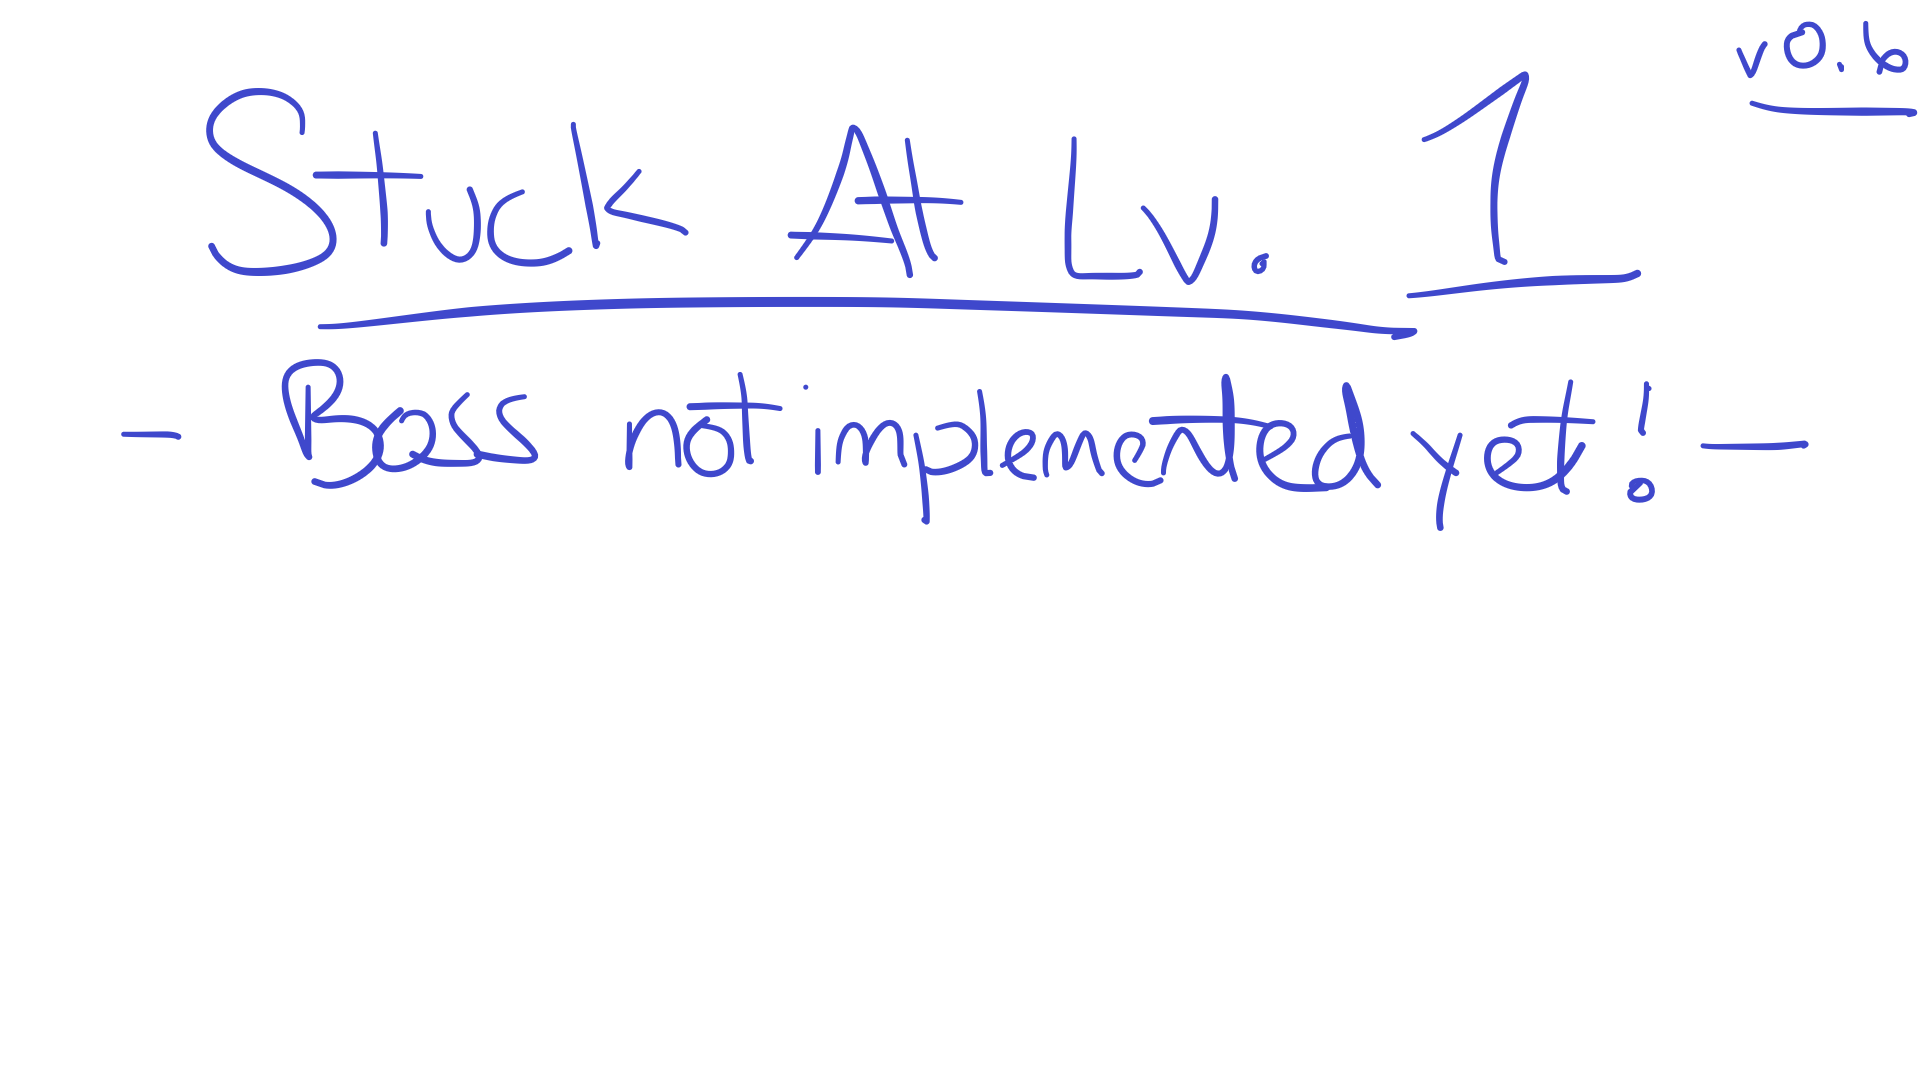 v0.6
Stuck At Lv. 1
- Boss not implemented yet! -